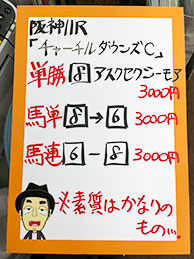 阪神11R
「チャーチルダウンズC」
単勝 8 アスクセクシーモア
3000円
馬単 8→6 3000円
馬連 6-8 3000円
※素質はかなりの
もの…